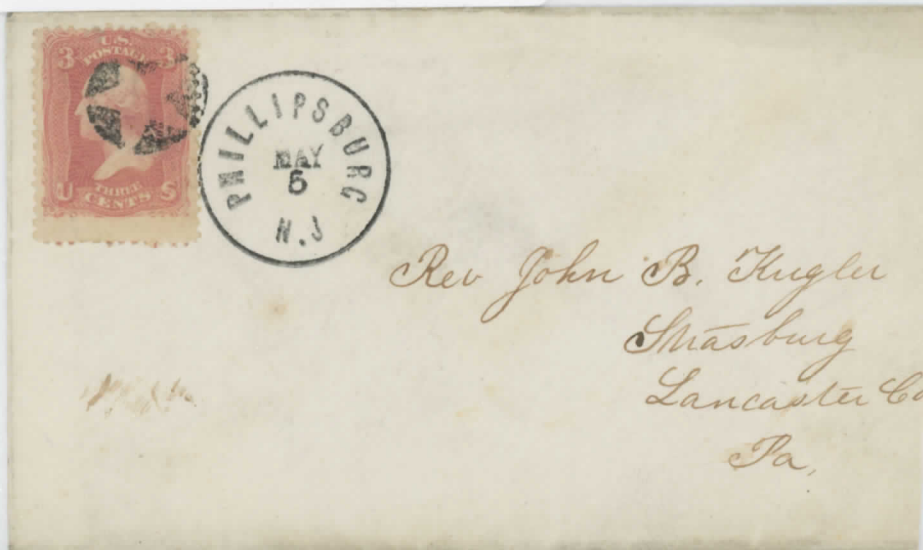 3 U.S. 3
POSTAGE
U THREE S
CENTS
PHILLIPSBURG
MAY
5
N.J
Rev John B. Kugler
Strasburg
Lancaster Co
Pa,